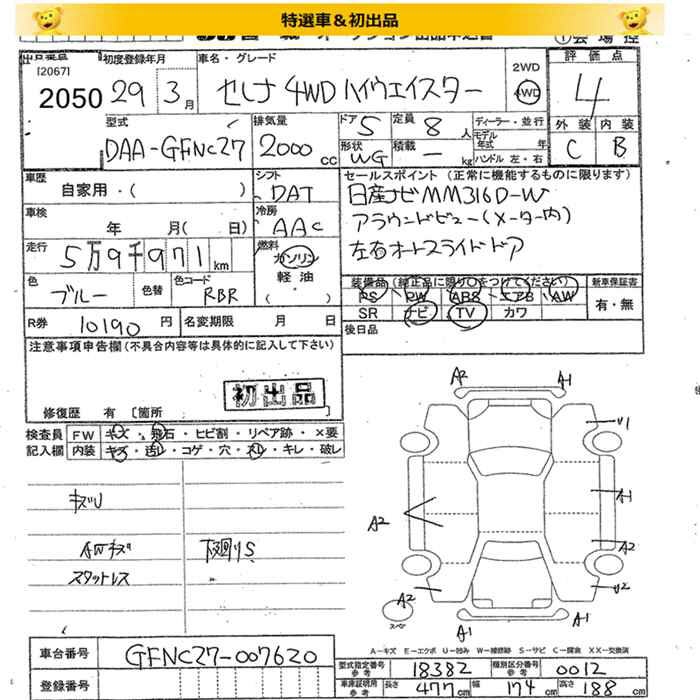 特選車＆初出品
[2067]
2050
初度登録年月
29年 3月
車名・グレード
セレナ 4WD ハイウェイスター
2WD
4WD
評価点
4
外装 内装
C B
型式
DAA-GFNC27
排気量
2000cc
ドア 5
定員 8人
形状 WG
積載 - kg
ディーラー・並行
モデル年式 年
ハンドル 左・右
車歴
自家用・( )
シフト
DAT
車検
年 月( 日)
冷房
AAC
走行
5万9千971km
燃料
ガソリン
軽油
・( )
色
ブルー
色替
色コード
RBR
R券 10190円
名変期限 月 日
セールスポイント (正常に機能するものに限ります)
日産ナビMM316D-W
アラウンドビュー(メーター内)
左右オートスライドドア
装備品 (純正品に限り○をつけてください)
新車保証書
PS PW ABS エアB AW
SR ナビ TV カワ
有・無
後日品
注意事項申告欄 (不具合内容等は具体的に記入して下さい)
初出品
修復歴 有 [箇所 ]
検査員記入欄
FW キズ・飛石・ヒビ割・リペア跡・×要
内装 キズ・汚レ・コゲ・穴・スレ・キレ・破レ
キズU
AWキズ
下廻りS
スタットレス
A2 A1
U1
A1
A2
A2
A2
U2
スペア
A1 A1
A－キズ E－エクボ U－凹み W－補修跡 S－サビ C－腐食 XX－交換済
車台番号
GFNC27-007620
登録番号
型式指定番号参考 18382
類別区分番号参考 0012
車庫証明用参考 長さ 477cm 幅 174cm 高さ 188cm